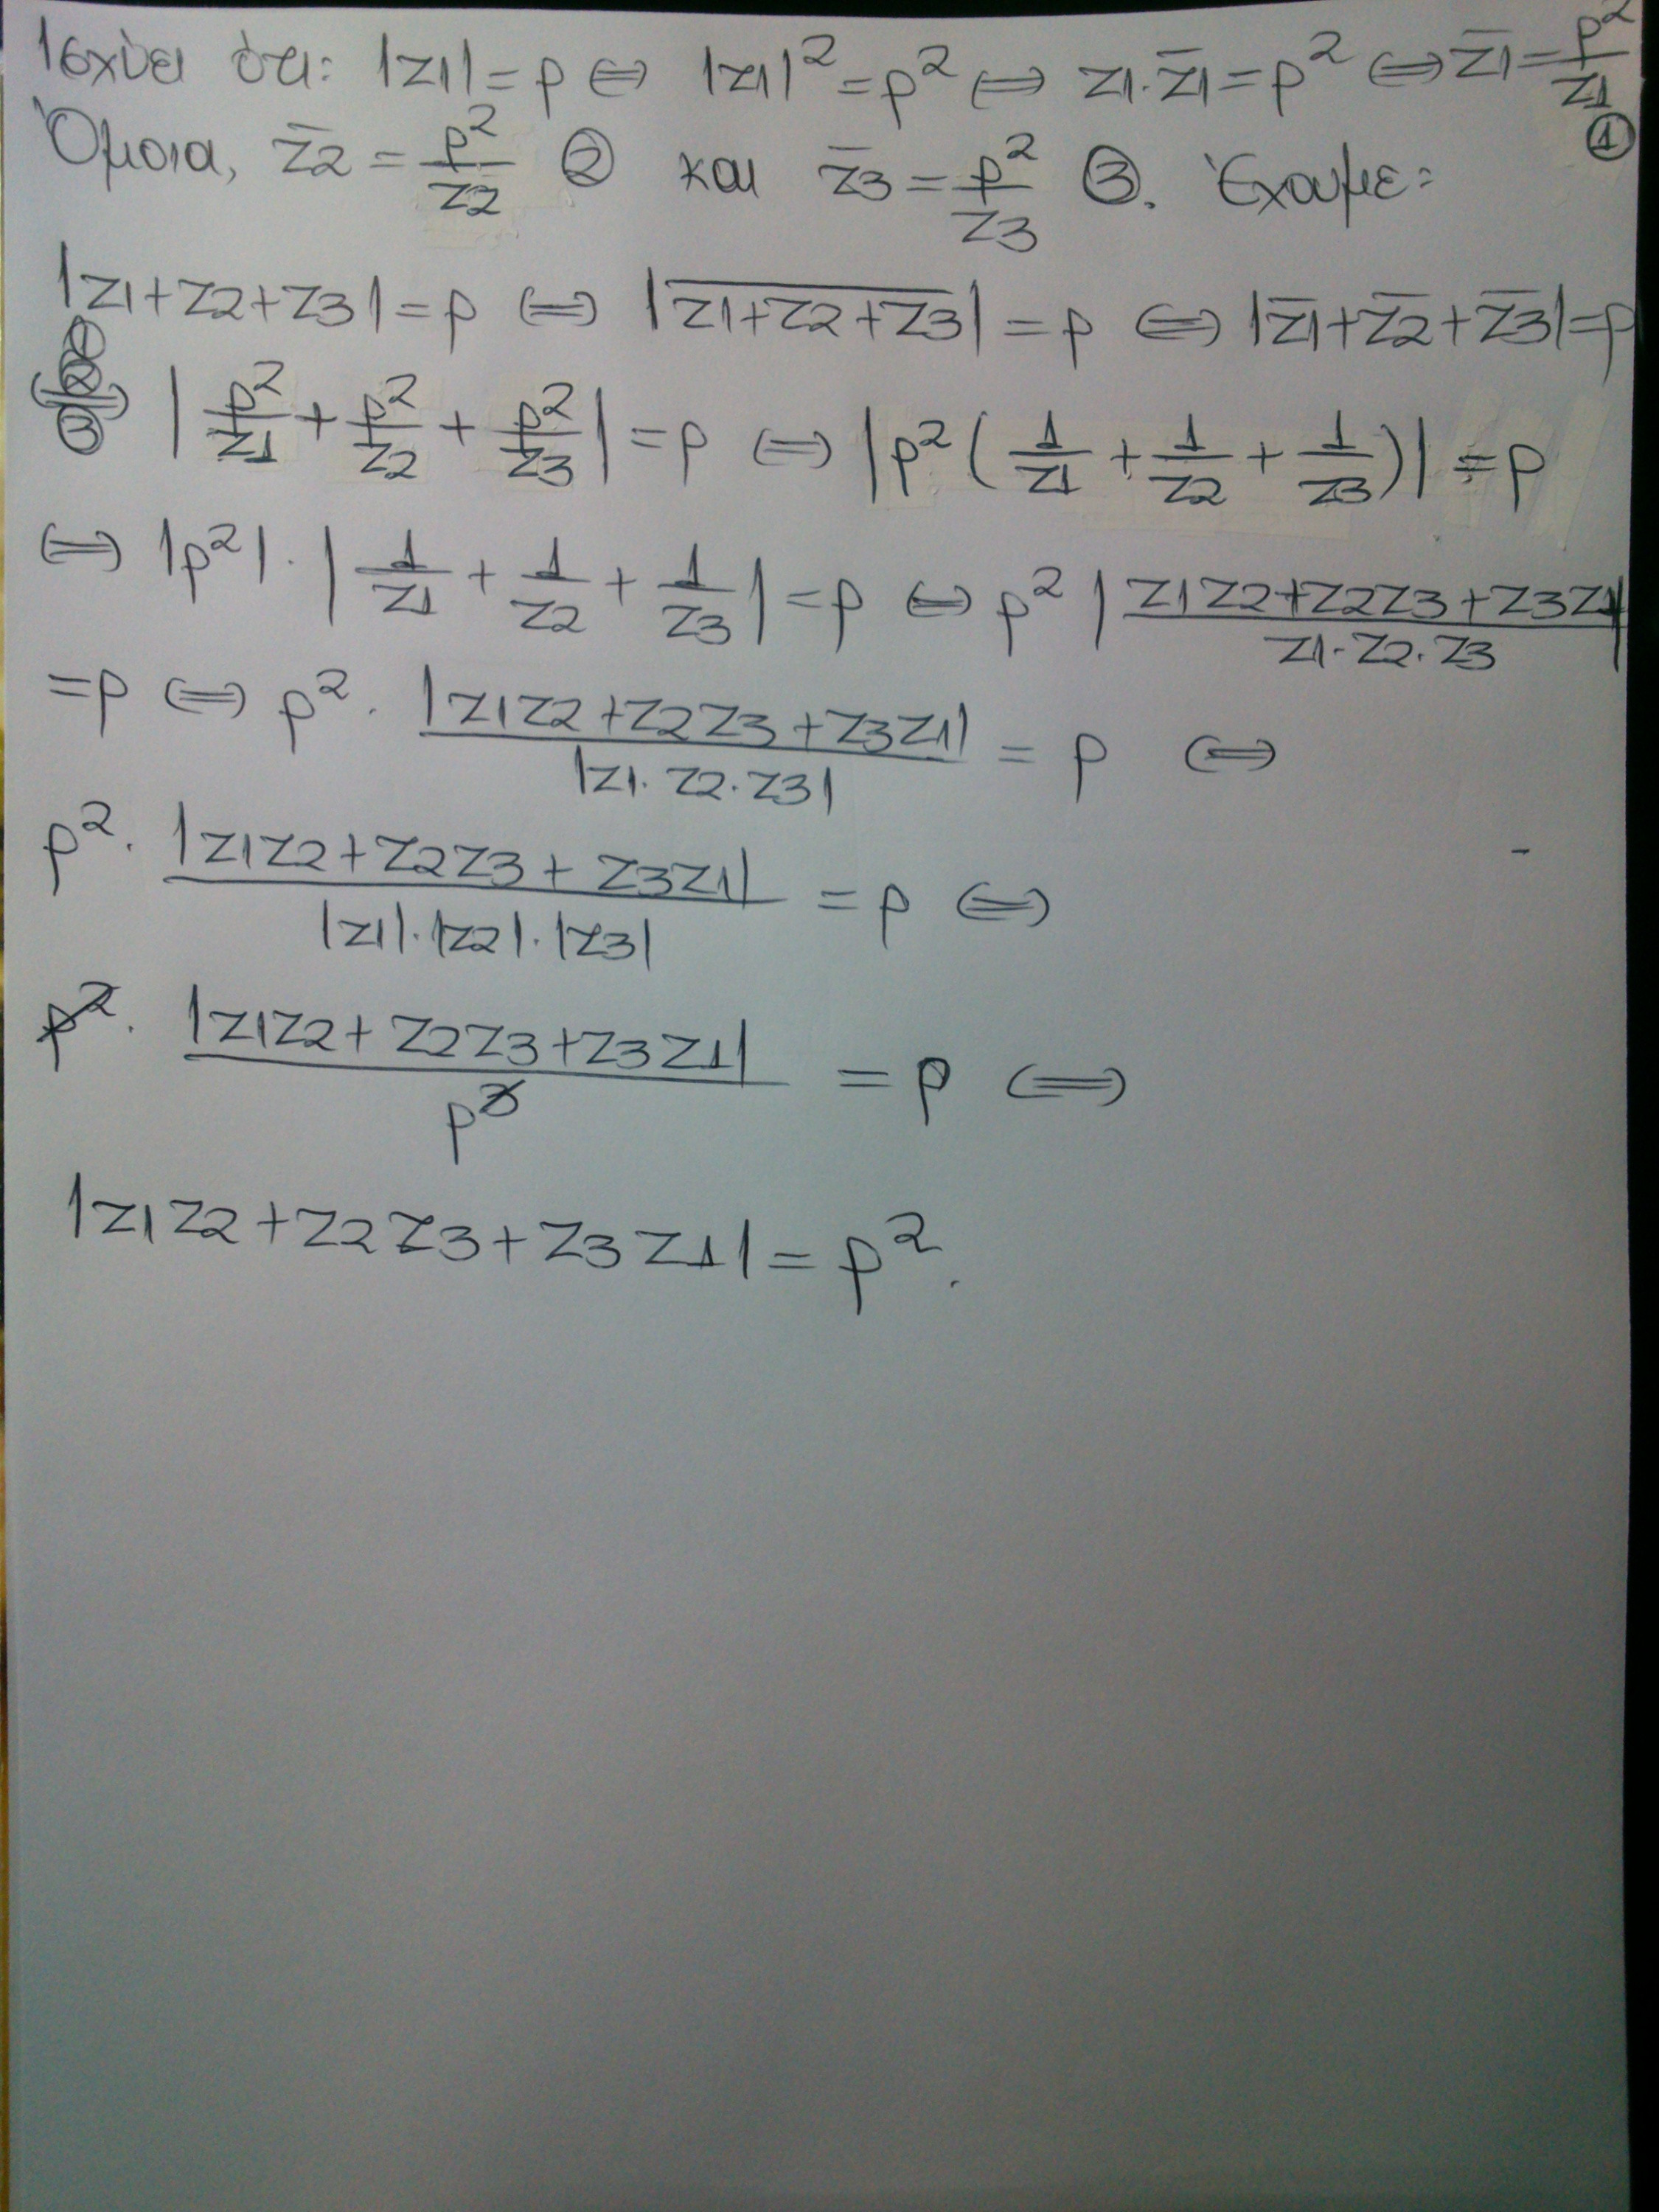 Ισχύει ότι: |z1| = ρ ⇔ |z1|² = ρ² ⇔ z1·z̄1 = ρ² ⇔ z̄1 = ρ²/z1 ①
Όμοια, z̄2 = ρ²/z2 ② και z̄3 = ρ²/z3 ③. Έχουμε:
|z1+z2+z3| = ρ ⇔ |\overline{z1+z2+z3}| = ρ ⇔ |z̄1+z̄2+z̄3| = ρ
①②⇔③ |ρ²/z1 + ρ²/z2 + ρ²/z3| = ρ ⇔ |ρ²(1/z1 + 1/z2 + 1/z3)| = ρ
⇔ |ρ²|·|1/z1 + 1/z2 + 1/z3| = ρ ⇔ ρ² |(z1z2+z2z3+z3z1)/(z1·z2·z3)|
= ρ ⇔ ρ² · |z1z2+z2z3+z3z1|/|z1·z2·z3| = ρ ⇔
ρ² · |z1z2+z2z3+z3z1|/(|z1|·|z2|·|z3|) = ρ ⇔
ρ² · |z1z2+z2z3+z3z1|/ρ³ = ρ ⇔
|z1z2+z2z3+z3z1| = ρ².